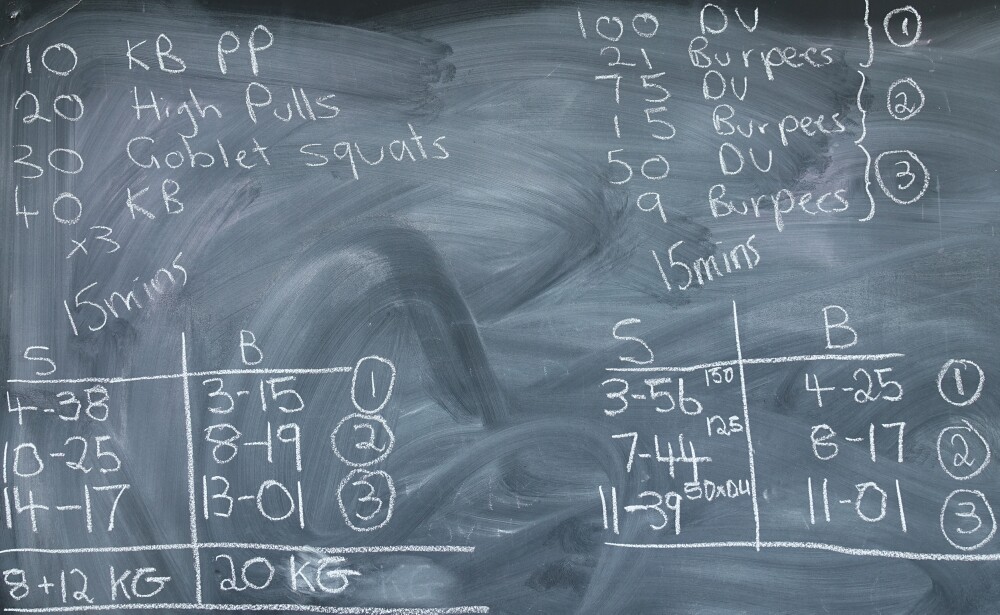 10 KB PP
20 High Pulls
30 Goblet squats
40 KB
x3
15mins
S B
4-38 3-15 1
10-25 8-19 2
14-17 13-01 3
8+12 KG 20 KG
100 DU 1
21 Burpees
75 DU 2
15 Burpees
50 DU 3
9 Burpees
15mins
S B
3-56 150 4-25 1
7-44 125 8-17 2
11-39 50xDU 11-01 3